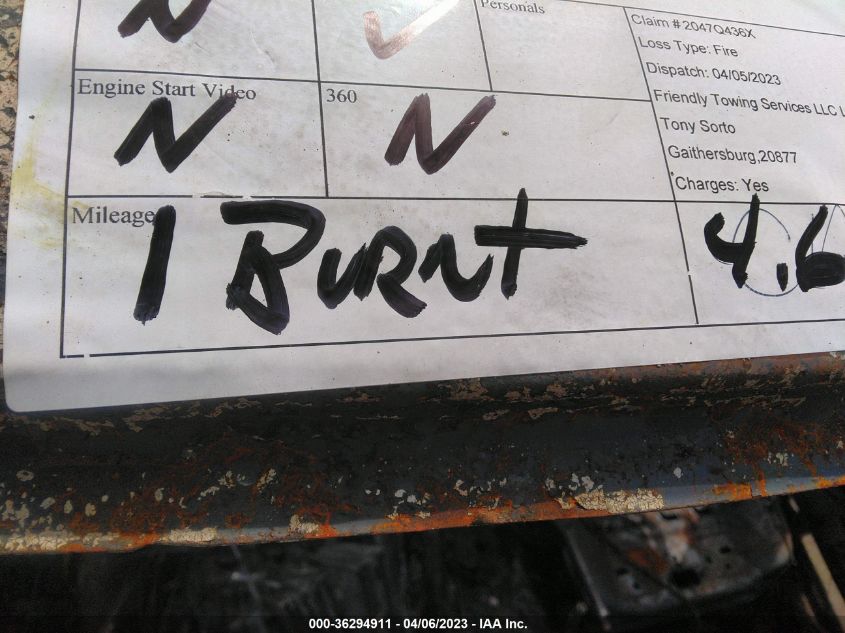 Personals
N
Claim #2047Q436X
Loss Type: Fire
Dispatch: 04/05/2023
Friendly Towing Services LLC
Tony Sorto
Gaithersburg,20877
Charges: Yes
Engine Start Video
N
360
N
Mileage
1 BURNt
4.6
000-36294911 - 04/06/2023 - IAA Inc.